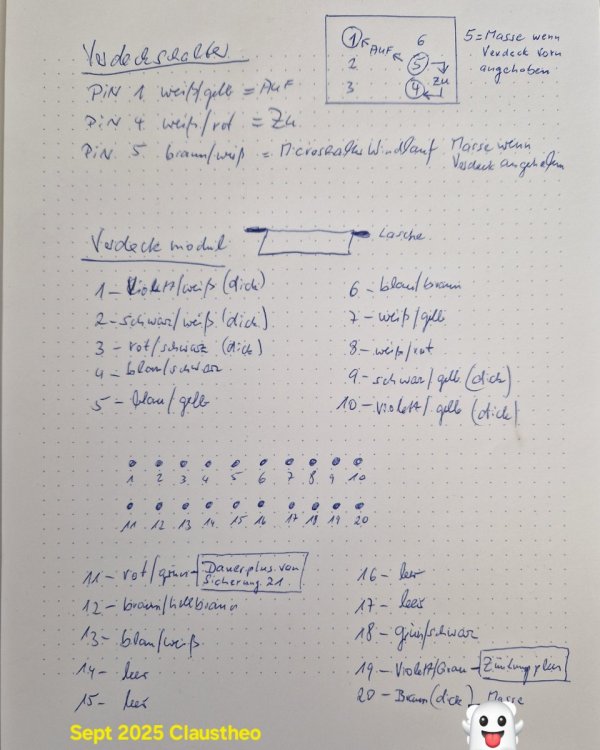 Verdeckschalter
1 6
AUF
2 5
Zu
3 4
5 = Masse wenn
Verdeck vorn
angehoben
PiN 1 weiß/gelb = AUF
PiN 4 weiß/rot = Zu
PiN 5 braun/weiß = Microschalter Windlauf Masse wenn
Verdeck angehoben
Verdeckmodul
Lasche
1 – Violett/weiß (dick)
2 – schwarz/weiß (dick)
3 – rot/schwarz (dick)
4 – blau/schwarz
5 – blau/gelb
6 – blau/braun
7 – weiß/gelb
8 – weiß/rot
9 – schwarz/gelb (dick)
10 – violett/gelb (dick)
1 2 3 4 5 6 7 8 9 10
11 12 13 14 15 16 17 18 19 20
11 – rot/grün – Dauerplus von
Sicherung 21.
12 – braun/hellbraun
13 – blau/weiß
14 – leer
15 – leer
16 – leer
17 – leer
18 – grün/schwarz
19 – Violett/Grau – Zündungsplus
20 – Braun (dick) Masse
Sept 2025 Claustheo